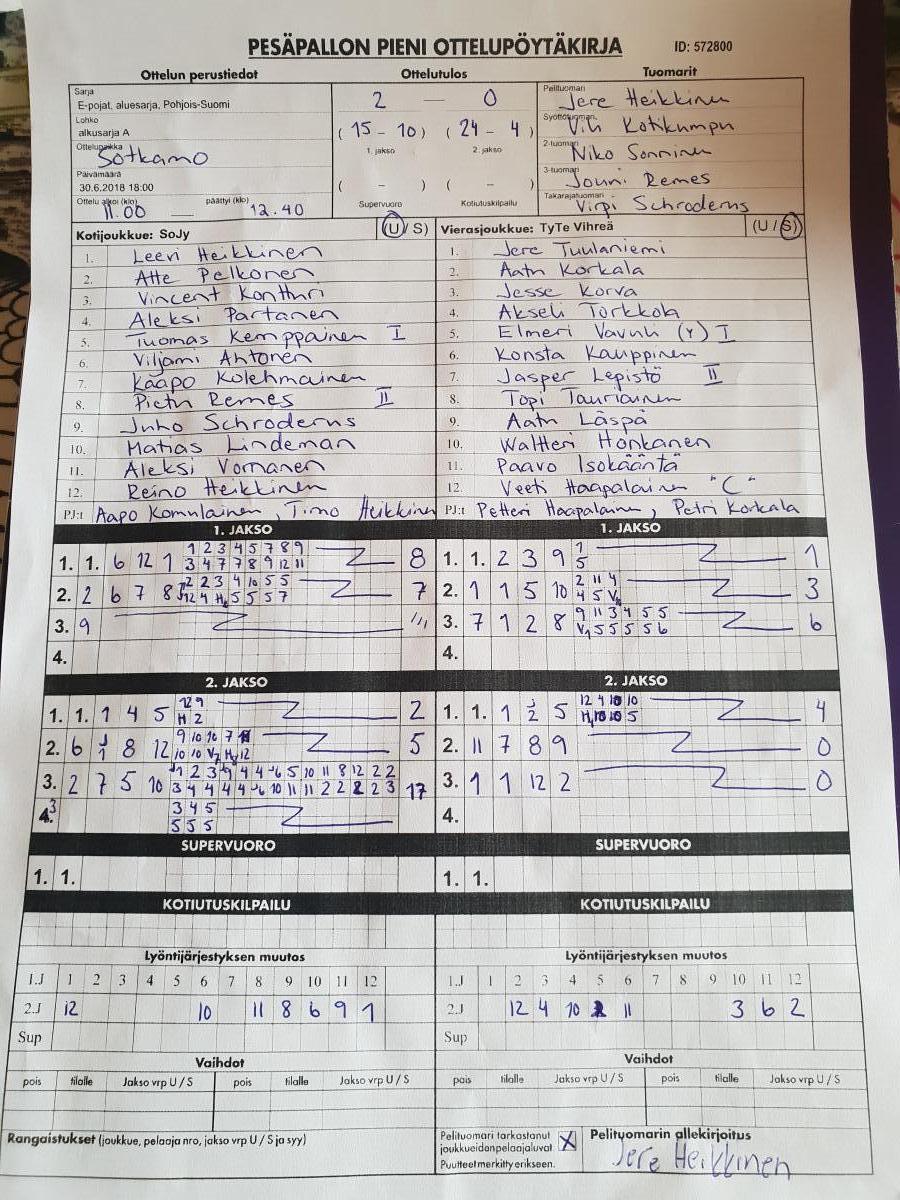 PESÄPALLON PIENI OTTELUPÖYTÄKIRJA ID: 572800
Ottelun perustiedot Ottelutulos Tuomarit
Sarja
E-pojat, aluesarja, Pohjois-Suomi
Lohko
alkusarja A
Ottelupaikka
Sotkamo
Päivämäärä
30.6.2018 18:00
Ottelu alkoi (klo) päättyi (klo)
11.00 12.40
2 — 0
(15 - 10) (24 - 4)
1. jakso 2. jakso
( - ) ( - )
Supervuoro Kotiutuskilpailu
Pelituomari
Jere Heikkinen
Syöttötuomari
Kotikumpu
2-tuomari
Niko Sonninen
3-tuomari
Jouni Remes
Takarajatuomari
Virpi Schroderus
Kotijoukkue: SoJy (U / S)
1. Leevi Heikkinen
2. Atte Pelkonen
3. Vincent Konttori
4. Aleksi Partanen
5. Tuomas Kemppainen I
6. Viljami Ahtonen
7. Kaapo Kolehmainen
8. Pietu Remes II
9. Juho Schroderus
10. Matias Lindeman
11. Aleksi Vornanen
12. Reino Heikkinen
PJ:t Aapo Komulainen, Timo Heikkinen
Vierasjoukkue: TyTe Vihreä (U / S)
1. Jere Tuulaniemi
2. Aatu Korkala
3. Jesse Korva
4. Akseli Torkkola
5. Elmeri Vavuli (Y) I
6. Konsta Kauppinen
7. Jasper Lepistö II
8. Topi Tauriainen
9. Aatu Läspä
10. Waltteri Honkanen
11. Paavo Isokääntä
12. Veeti Haapalainen "C"
PJ:t Petteri Haapalainen, Petri Korkala
1. JAKSO
1. 1. 6 12 1 1 2 3 4 5 7 8 9 8
3 4 7 7 8 9 12 11
2. 2 6 7 8 2 2 3 4 10 5 5 7
12 4 5 5 5 7
3. 9
4.
1. JAKSO
1. 1. 2 3 9 1 1
5
2. 1 1 5 10 2 11 4 3
4 5
3. 7 1 2 8 9 11 3 4 5 5 6
5 5 5 5 6
4.
2. JAKSO
1. 1. 1 4 5 12 9 2
H 2
2. 6 8 12 9 10 10 7 5
10 10 12
3. 2 7 5 10 1 2 3 4 4 6 5 10 11 8 12 2 2 17
3 4 4 4 4 6 10 11 11 2 2 2 2 3
4. 3 3 4 5
5 5 5
2. JAKSO
1. 1. 1 2 5 12 4 10 10 4
10 10 5
2. 11 7 8 9 0
3. 1 1 12 2 0
4.
SUPERVUORO
1. 1.
SUPERVUORO
1. 1.
KOTIUTUSKILPAILU
KOTIUTUSKILPAILU
Lyöntijärjestyksen muutos
1.J 1 2 3 4 5 6 7 8 9 10 11 12
2.J 12 10 11 8 6 9 1
Sup
Lyöntijärjestyksen muutos
1.J 1 2 3 4 5 6 7 8 9 10 11 12
2.J 12 4 10 11 3 6 2
Sup
Vaihdot
pois tilalle Jakso vrp U / S pois tilalle Jakso vrp U / S
Vaihdot
pois tilalle Jakso vrp U / S pois tilalle Jakso vrp U / S
Rangaistukset (joukkue, pelaaja nro, jakso vrp U / S ja syy)
Pelituomari tarkastanut
joukkueiden pelaajaluvat X
Puutteet merkitty erikseen.
Pelituomarin allekirjoitus
Jere Heikkinen